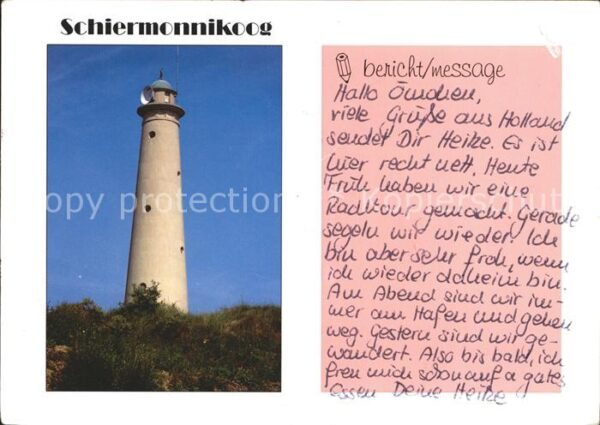 Schiermonnikoog
bericht/message
Hallo Omchen,
viele Grüße aus Holland
sendet Dir Heike. Es ist
hier recht nett. Heute
Früh haben wir eine
Radtour gemacht. Gerade
segeln wir wieder. Ich
bin aber sehr froh, wenn
ich wieder daheim bin.
Am Abend sind wir im-
mer am Hafen und gehen
weg. Gestern sind wir ge-
wandert. Also bis bald, ich
freu mich schon auf a gutes
Essen Deine Heike
copy protection Kopierschutz